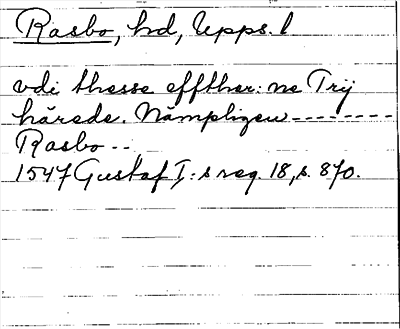 Rasbo, hd, Upps. l
vdi thesse effther: ne Trij
härede. Nämpligen --------
Rasbo --
1547 Gustaf I: s reg. 18, s. 870.